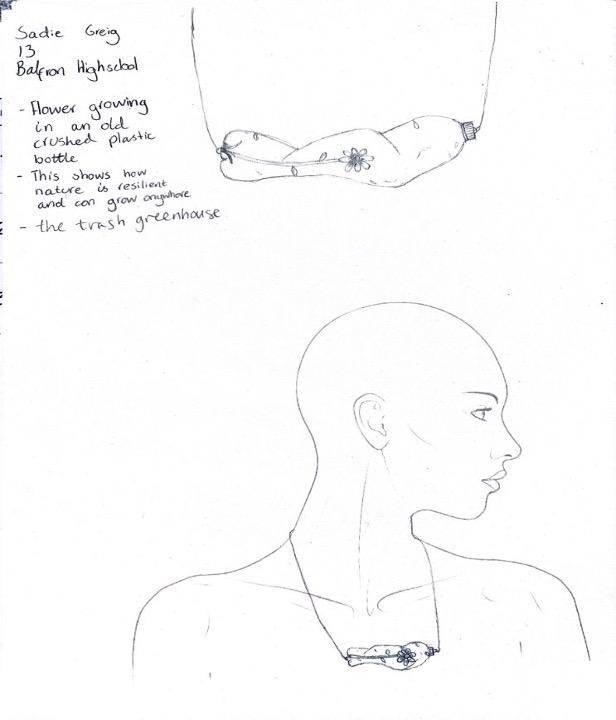 Sadie Greig
13
Balfron Highschool
- Flower growing
in an old
crushed plastic
bottle
- This shows how
nature is resilient
and can grow anywhere
- the trash greenhouse